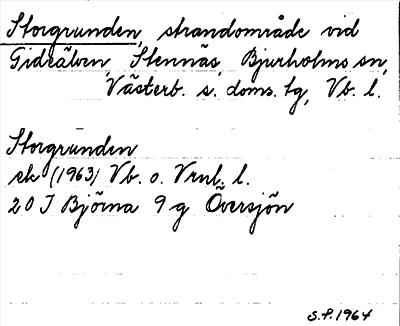 Storgrunden, strandområde vid
Gideälven, Stennäs, Bjurholms sn,
Västerb. s. doms. tg, Vb. l.
Storgrunden
ek (1963) Vb. o. Vrnl. l.
20 I Björna 9-g Översjön
S.P. 1964